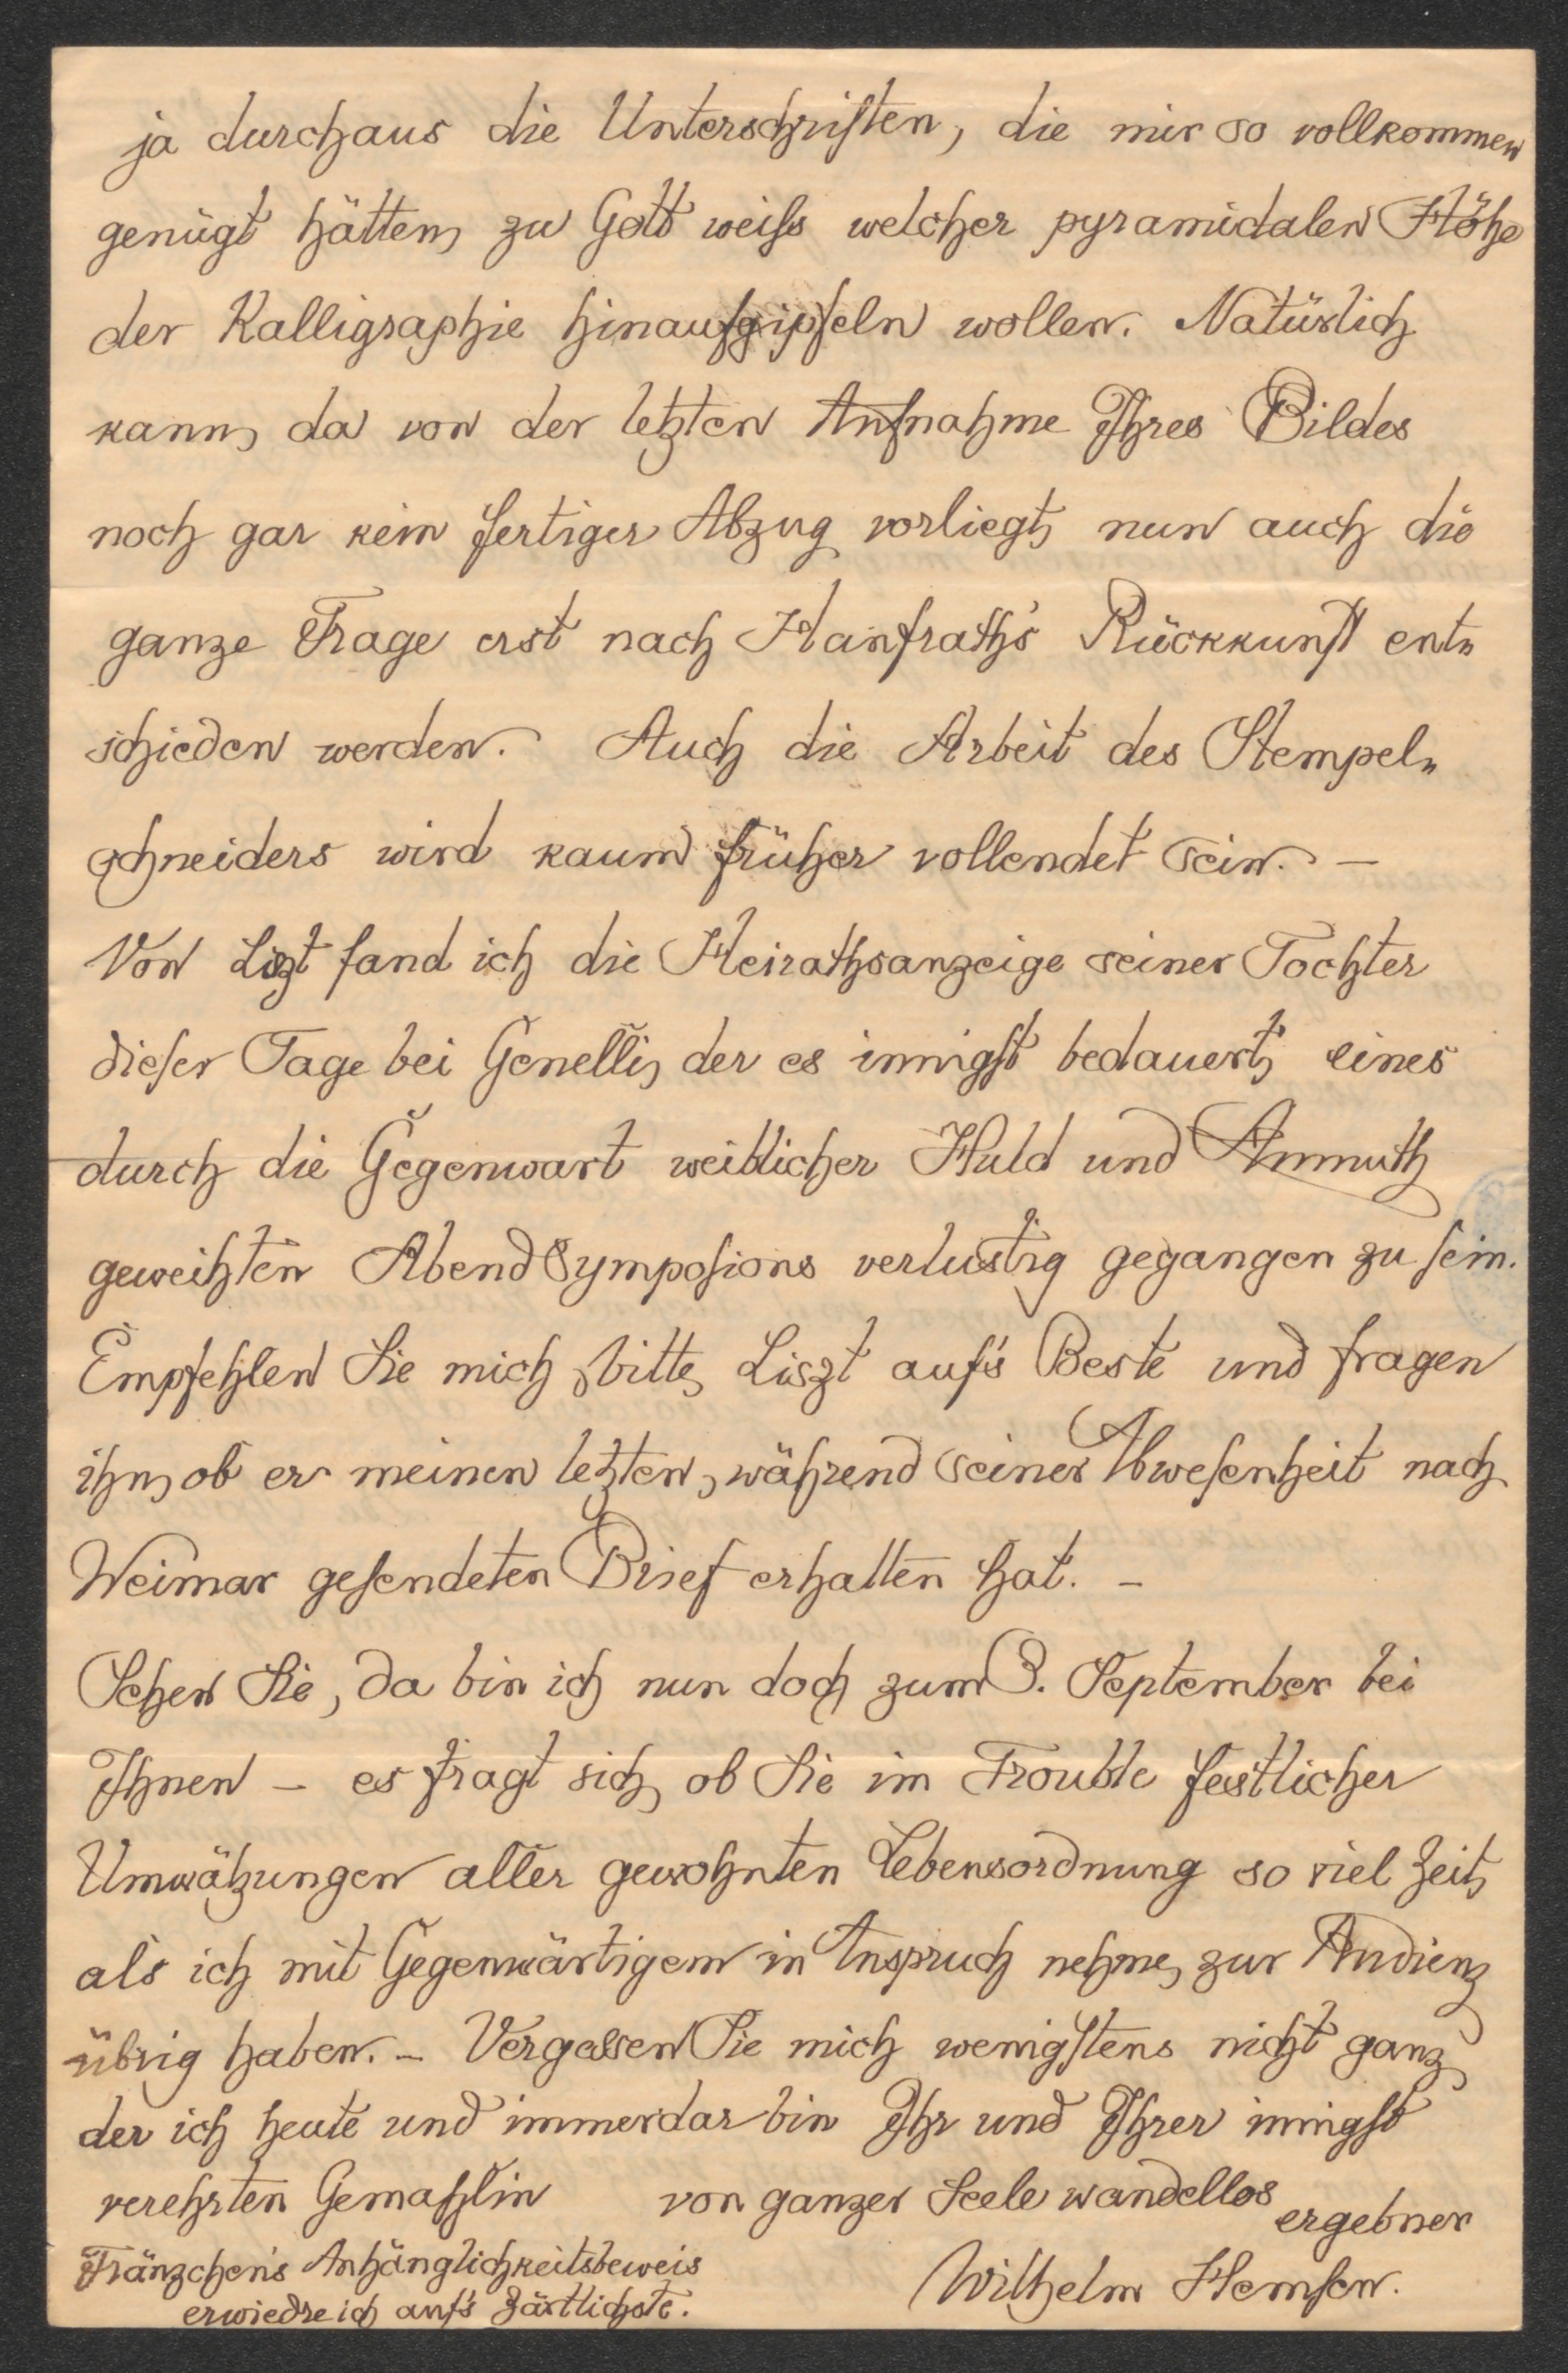 ja durchaus die Unterschriften, die mir so vollkommen
genügt hätten, zu Gott weiß welcher pyramidalen Höhe
der Kalligraphie hinaufgipfeln wollen. Natürlich
kann, da von der letzten Aufnahme Ihres Bildes
noch gar kein fertiger Abzug vorliegt, nun auch die
ganze Frage erst nach Hanfraths's Rückkunft ent„
schieden werden. Auch die Arbeit des Stempel„
schneiders wird kaum früher vollendet sein. –
Von Liszt fand ich die Heirathsanzeige seiner Tochter
dieser Tage bei Genelli, der es innigst bedauert, eines
durch die Gegenwart weiblicher Huld und Anmuth
geweihten AbendSymposions verlustig gegangen zu sein.
Empfehlen Sie mich, bitte, Liszt auf's Beste und fragen
ihn, ob er meinen letzten, während seiner Abwesenheit nach
Weimar gesendeten Brief erhalten hat. –
Sehen Sie, da bin ich nun doch zum 3. September bei
Ihnen – es fragt sich, ob Sie im Trouble festlicher
Umwälzungen aller gewohnten Lebensordnung so viel Zeit,
als ich mit Gegenwärtigem in Anspruch nehme, zur Audienz
übrig haben. – Vergessen Sie mich wenigstens nicht ganz
der ich heute und immerdar bin Ihr und Ihrer innigst
verehrten Gemahlin von ganzer Seele wandellos ergebner
Wilhelm Hemsen.
Fränzchen's Anhänglichkeitsbeweis
erwiedre ich auf's Zärtlichste.